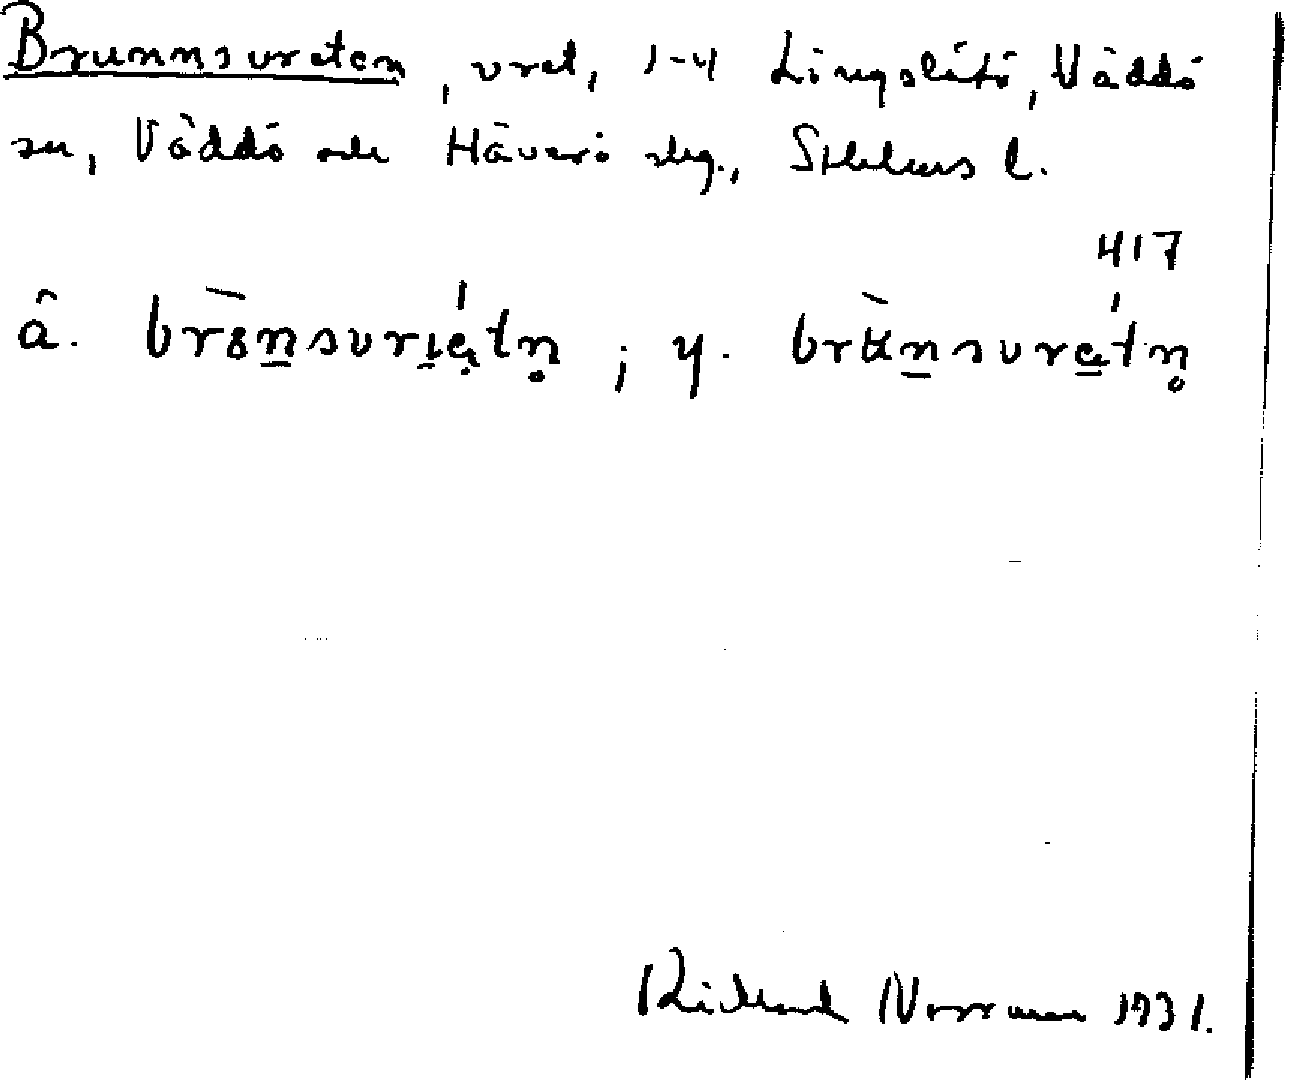 Brunnsvreten, vret, 1-4 Lingslätö, Väddö
sn, Väddö och Häverö slg., Sthlms l.
417
â. brȣnsvriẹtṇ; y. brʉnsvretn̥
Richard Norrman 1931.